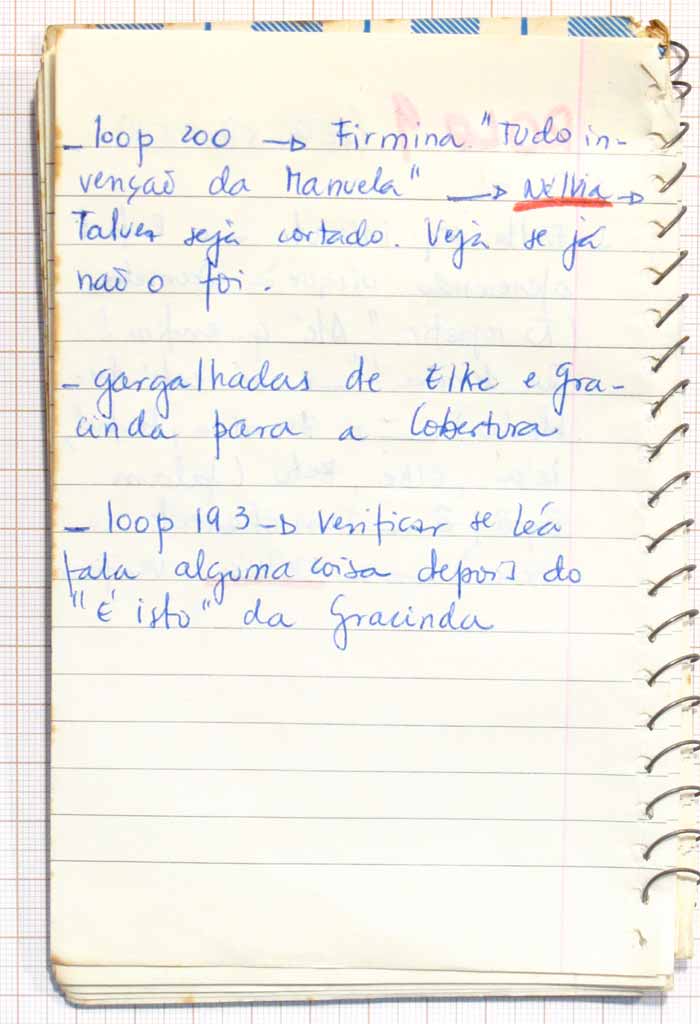 - loop 200 → Firmina "Tudo in-
venção da Manuela" → Nélvia →
Talvez seja cortado. Veja se já
não o foi.
- gargalhadas de Elke e Gra-
cinda para a Cobertura
- loop 193 → Verificar se Léa
fala alguma coisa depois do
"É isto" da Gracinda